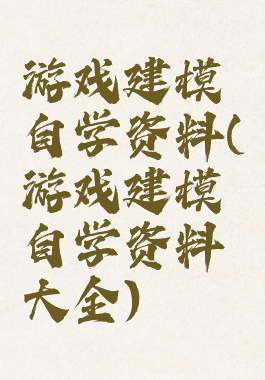 游戏建模
自学资料(
游戏建模
自学资料
大全)